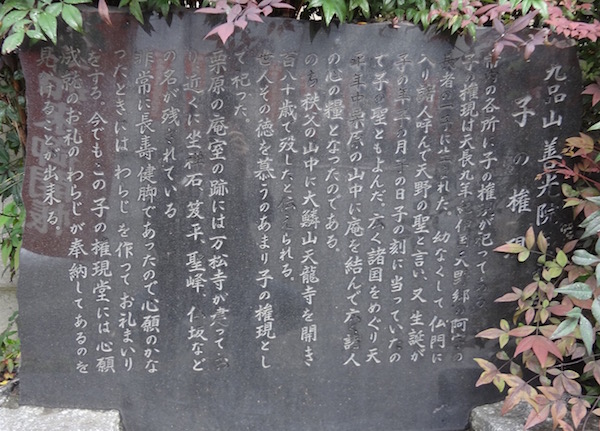 九品山善光院
子の権現
の各所に子の権現が祀って
子の権現は天長九年
長者 幼なくして仏門に
入り諸人呼んで天野の聖と言い、又生誕が
子の年 の月 の日子の刻に当っていたの
で子の聖ともよんだ。広く諸国をめぐり天
年中 原の山中に庵を結んで 諸人
の心の糧となったのである。
のち秩父の山中に大鱗山天龍寺を開き
百八十歳で歿したと られる。
世人その徳を慕うのあまり子の権現とし
て祀った。
栗原の庵室の跡には万松寺が建って
り近くに坐 石、笈平、聖峰、仏坂など
の名が残されている
非常に長寿健脚であったので心願のかな
ったときには わらじ を作ってお礼まいり
をする。今でもこの子の権現堂には心願
成就のお礼のわらじが奉納してあるのを
見 けることが出来る。